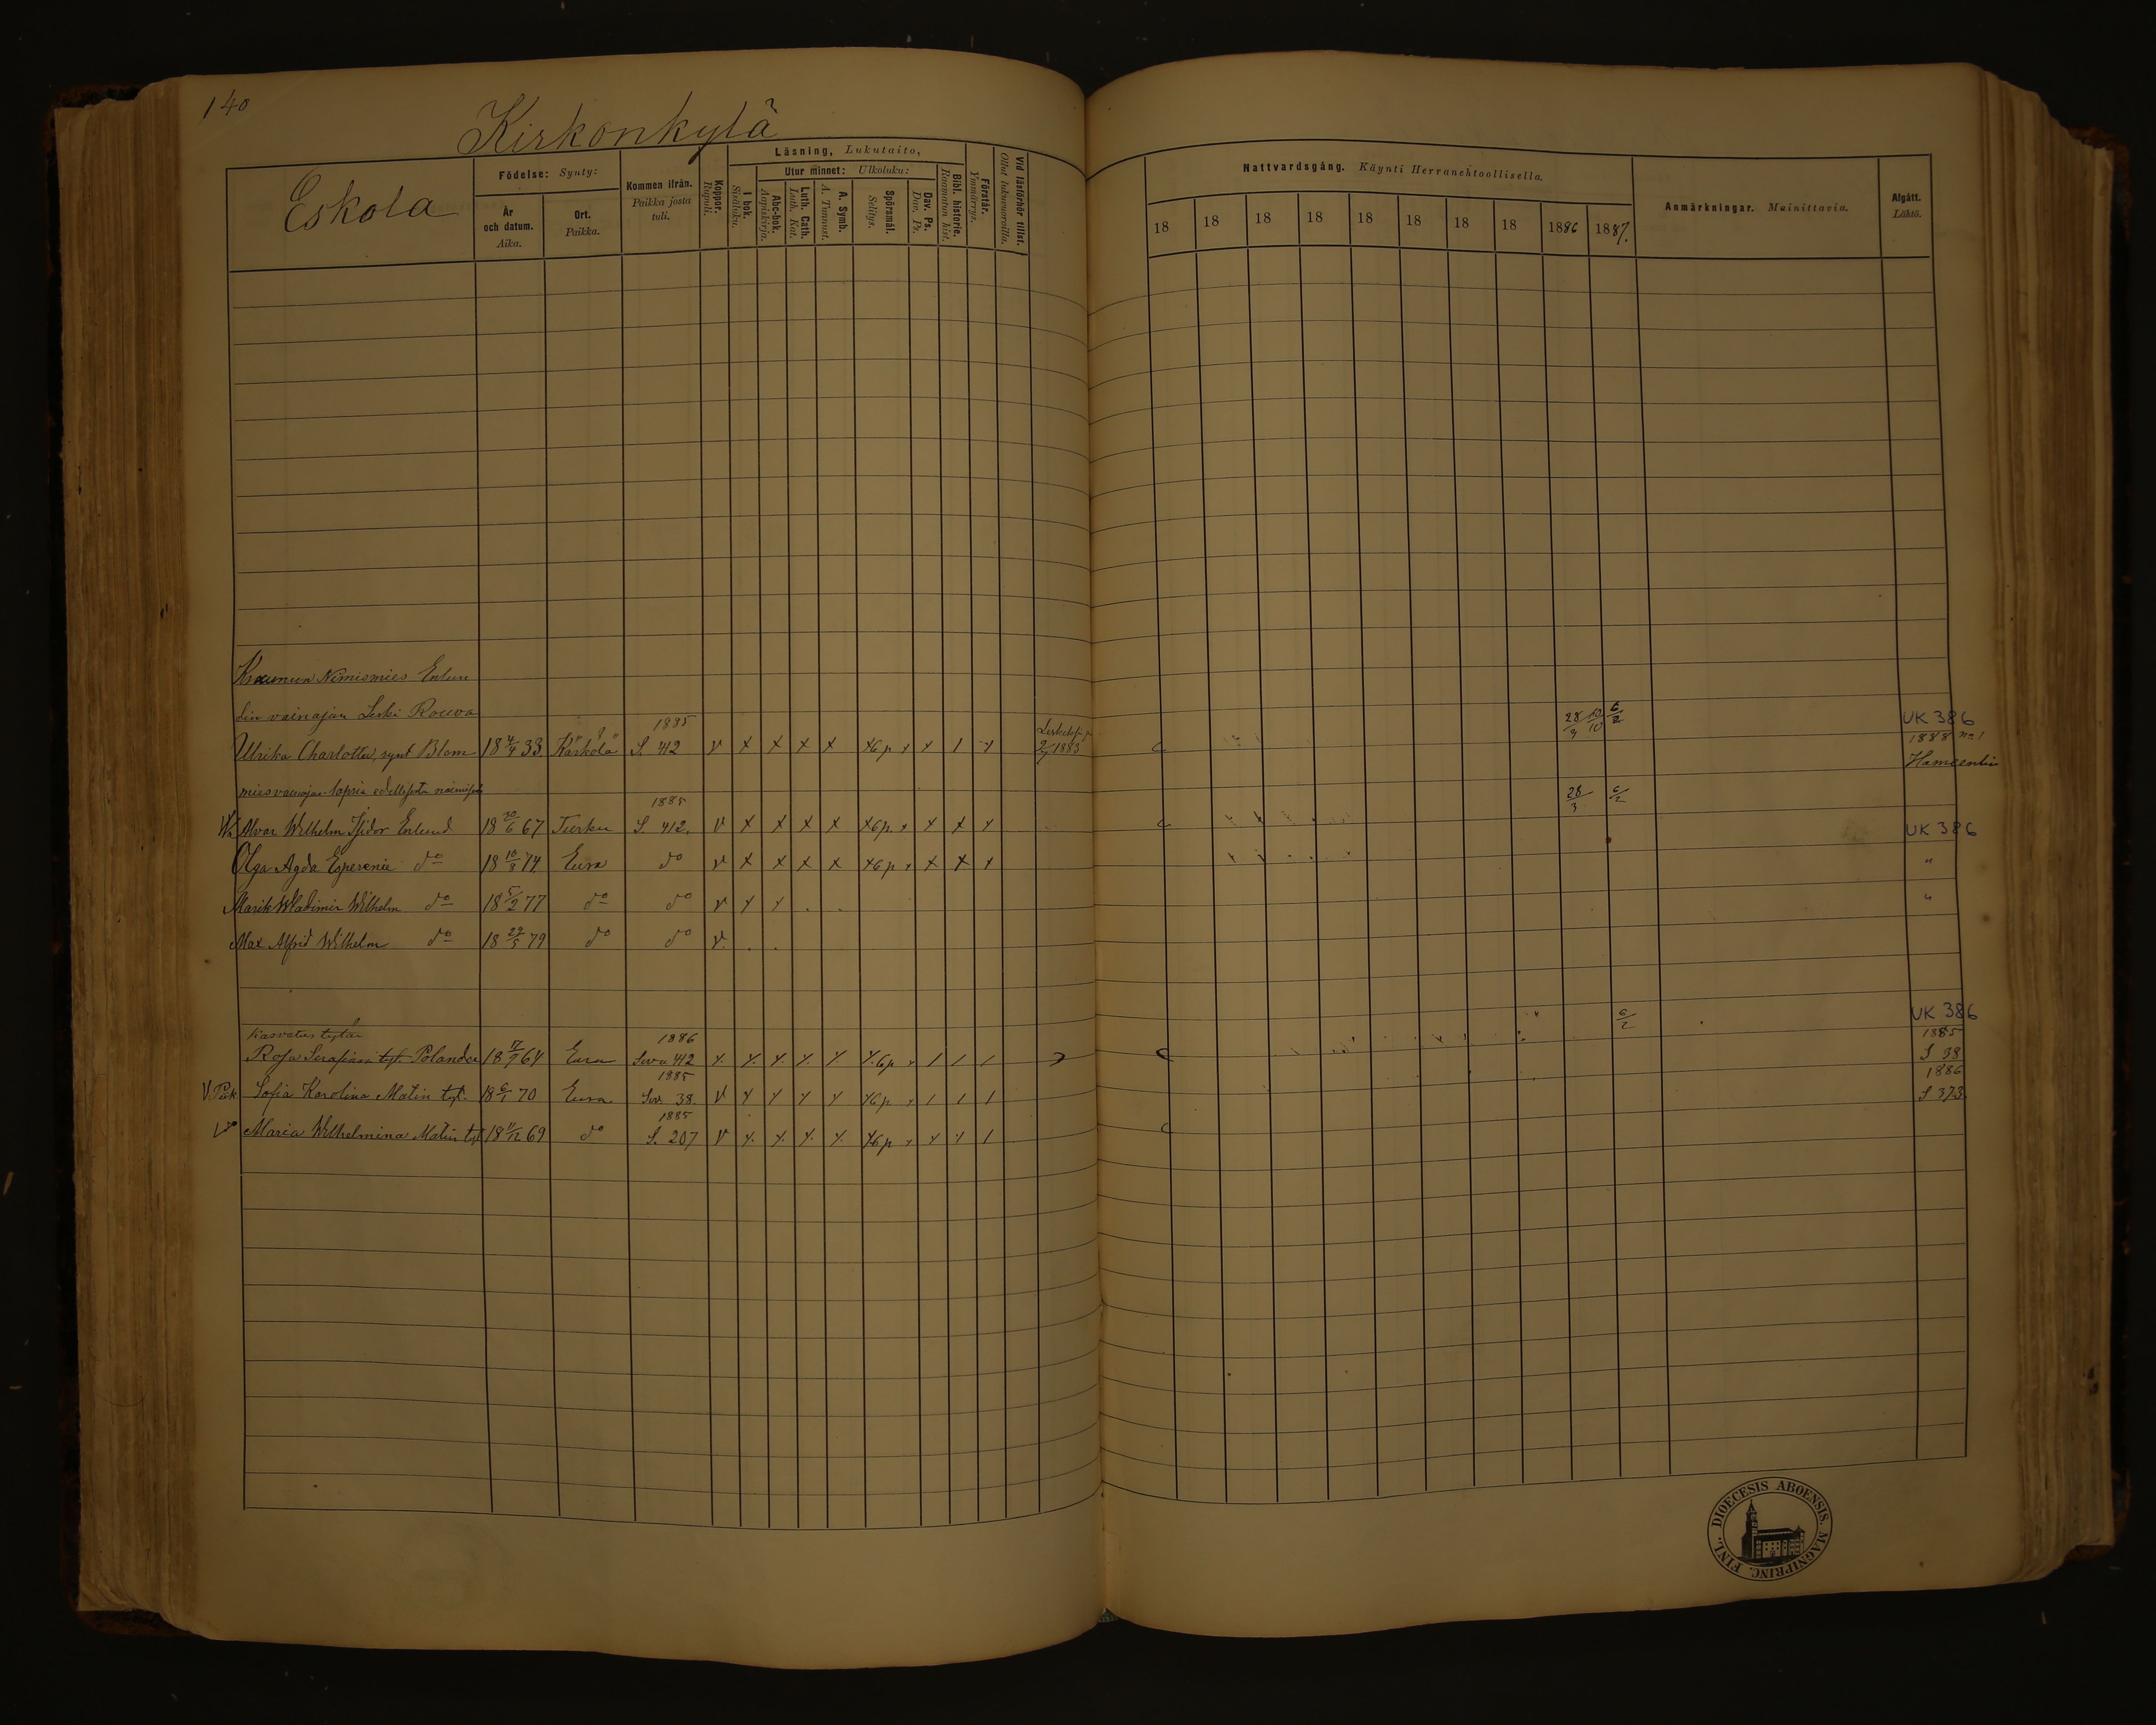 140
Kirkonkylä
Eskola
Födelse: Synty:
År och datum. Aika.
Ort. Paikka.
Kommen ifrån. Paikka josta tuli.
Koppor. Rupuli.
Läsning, Lukutaito,
I bok. Sisäluku.
Utur minnet: Ulkoluku:
Abc-bok. Aapiskirja.
Luth. Cath. Luth. Kat.
A. Symb. A. Tunnust.
Spörsmål. Selitys.
Dav. Ps. Dav. Ps.
Bibl. historie. Raamatun hist.
Förstår. Ymmärrys.
Vid läsförhör tillst. Ollut lukuvuoroilla.
Nattvardsgång. Käynti Herranehtoollisella.
18 18 18 18 18 18 18 18 1886 1887.
Anmärkningar. Mainittavia.
Afgått. Lähtö.
Kruunun Nimismies Enlun
din vainajan Leski Rouva
Ulrika Charlotta, synt Blom 18 4/4 33. Kärkölä 1885 S. 412 v x x x x x6p x x 1 x 2/7 1883 28/3 10/10 6/2 UK 386 1888 no 1
miesvainajan lapsia edellisestä naimisesta
Alvar Wilhelm Isidor Enlund 18 20/6 67 Turku 1885 S. 412. v x x x x x6p x x x x 28/3 6/2
UK 386
Olga Agda Esperenie do 18 10/8 74. Eura do v x x x x x6p x x x x "
Marik Wladimir Wilhelm do 18 5/2 77 do do v x x . . "
Max Alfrid Wilhelm do 18 29/5 79 do do v. . .
Kasvatus tytär
Rosa Serafiina tyt. Polander 18 17/7 64 Eura 1886 412 x. x. x. x. x. x.6p x 1 1 1 6/2 UK 386
1885 S 38
Sofia Karolina Matin tyt. 18 6/1 70 Eura 1885 Siv. 38. v x x x x x6p x 1 1 1 1886 S 373.
Maria Wilhelmina Matin tyt 18 11/12 69 do 1885 S. 207 v x. x. x. x. x6p x x x 1
DIOECESIS ABOENSIS. MAGNIPRINC. FINL.